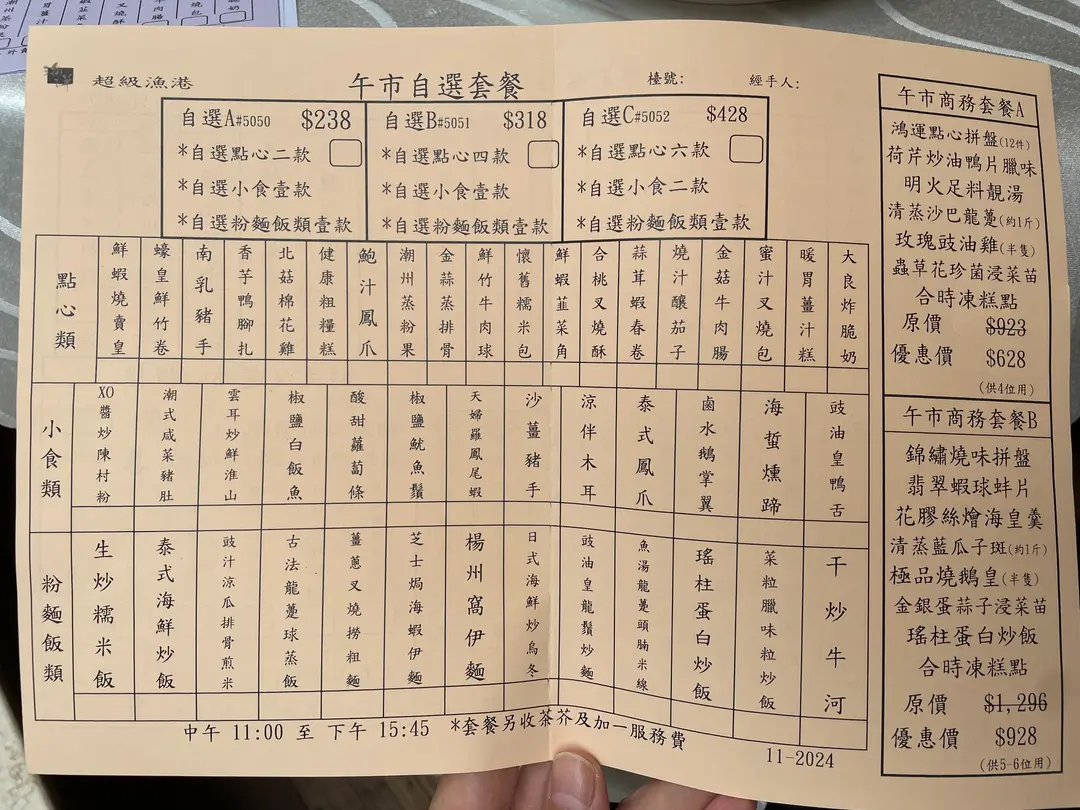 超級漁港
午市自選套餐
檯號:
經手人:
自選A#5050 $238
*自選點心二款
*自選小食壹款
*自選粉麵飯類壹款
自選B#5051 $318
*自選點心四款
*自選小食壹款
*自選粉麵飯類壹款
自選C#5052 $428
*自選點心六款
*自選小食二款
*自選粉麵飯類壹款
點心類
鮮蝦燒賣皇
蠔皇鮮竹卷
南乳豬手
香芋鴨腳扎
北菇棉花雞
健康粗糧糕
鮑汁鳳爪
潮州蒸粉果
金蒜蒸排骨
鮮竹牛肉球
懷舊糯米包
鮮蝦韮菜角
合桃叉燒酥
蒜茸蝦春卷
燒汁釀茄子
金菇牛肉腸
蜜汁叉燒包
暖胃薑汁糕
大良炸脆奶
小食類
XO醬炒陳村粉
潮式咸菜豬肚
雲耳炒鮮淮山
椒鹽白飯魚
酸甜蘿蔔條
椒鹽魷魚鬚
天婦羅鳳尾蝦
沙薑豬手
涼伴木耳
泰式鳳爪
鹵水鵝掌翼
海蜇燻蹄
豉油皇鴨舌
粉麵飯類
生炒糯米飯
泰式海鮮炒飯
豉汁涼瓜排骨煎米
古法龍躉球蒸飯
薑蔥叉燒撈粗麵
芝士焗海蝦伊麵
楊州窩伊麵
日式海鮮炒烏冬
豉油皇龍鬚炒麵
魚湯龍躉頭腩米線
瑤柱蛋白炒飯
菜粒臘味粒炒飯
干炒牛河
中午 11:00 至 下午 15:45 *套餐另收茶芥及加一服務費
11-2024
午市商務套餐A
鴻運點心拼盤(12件)
荷芹炒油鴨片臘味
明火足料靚湯
清蒸沙巴龍躉(約1斤)
玫瑰豉油雞(半隻)
蟲草花珍菌浸菜苗
合時凍糕點
原價 $923
優惠價 $628
(供4位用)
午市商務套餐B
錦繡燒味拼盤
翡翠蝦球蚌片
花膠絲燴海皇羹
清蒸藍瓜子斑(約1斤)
極品燒鵝皇(半隻)
金銀蛋蒜子浸菜苗
瑤柱蛋白炒飯
合時凍糕點
原價 $1,296
優惠價 $928
(供5-6位用)